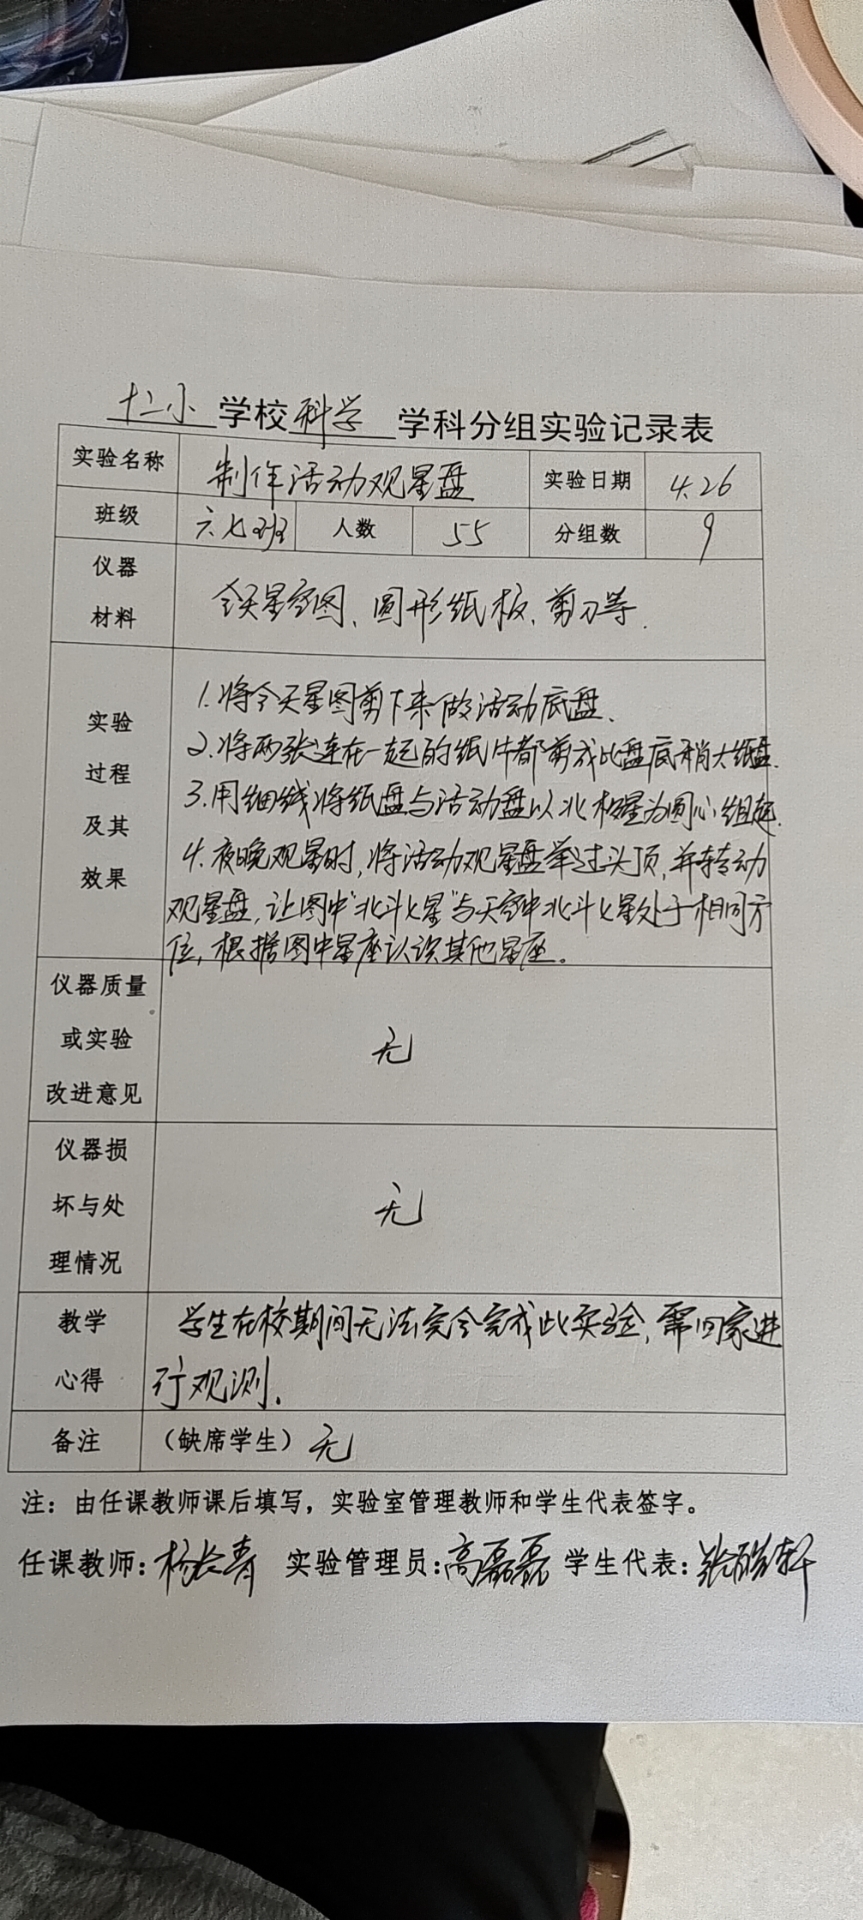 十二小学校科学学科分组实验记录表
实验名称 制作活动观星盘 实验日期 4.26
班级 六.七班 人数 55 分组数 9
仪器
材料
全天星空图、圆形纸板、剪刀等.
实验
过程
及其
效果
1.将全天星图剪下来做活动底盘、
2.将两张连在一起的纸片都剪成比盘底稍大纸盘.
3.用细线将纸盘与活动盘以北极星为圆心组起.
4.夜晚观星时,将活动观星盘举过头顶,并转动
观星盘,让图中"北斗七星"与天空中北斗七星处于相同方
位,根据图中星座认识其他星座。
仪器质量
或实验
改进意见
无
仪器损
坏与处
理情况
无
教学
心得
学生在校期间无法完全完成此实验,需回家进
行观测.
备注 （缺席学生）无
注：由任课教师课后填写，实验室管理教师和学生代表签字。
任课教师:杨长青 实验管理员:高磊磊 学生代表:张皓轩